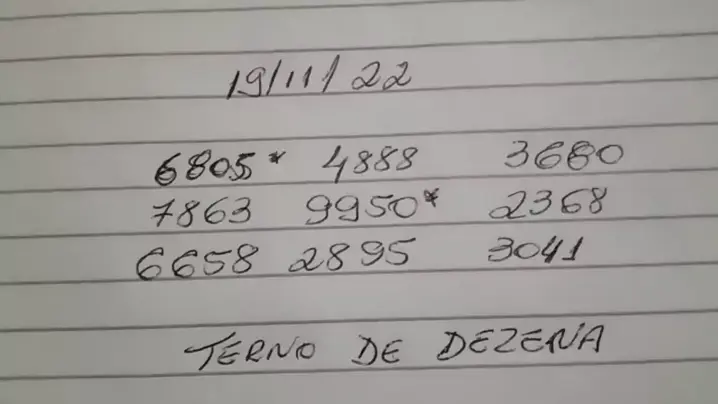 19/11/22
6805* 4888 3680
7863 9950* 2368
6658 2895 3041
TERNO DE DEZENA